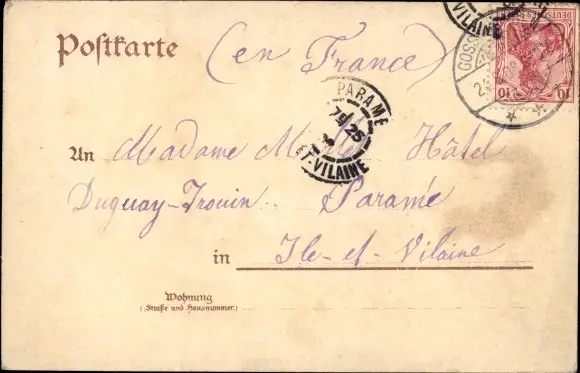 Postkarte
(en France)
VILAINE
GOS
DEUTSCHES
10 10
PARAMÉ
7E/25
ET-VILAINE
An Madame Hôtel
Duguay-Trouin Paramé
in Ile-et-Vilaine
Wohnung
(Straße und Hausnummer)